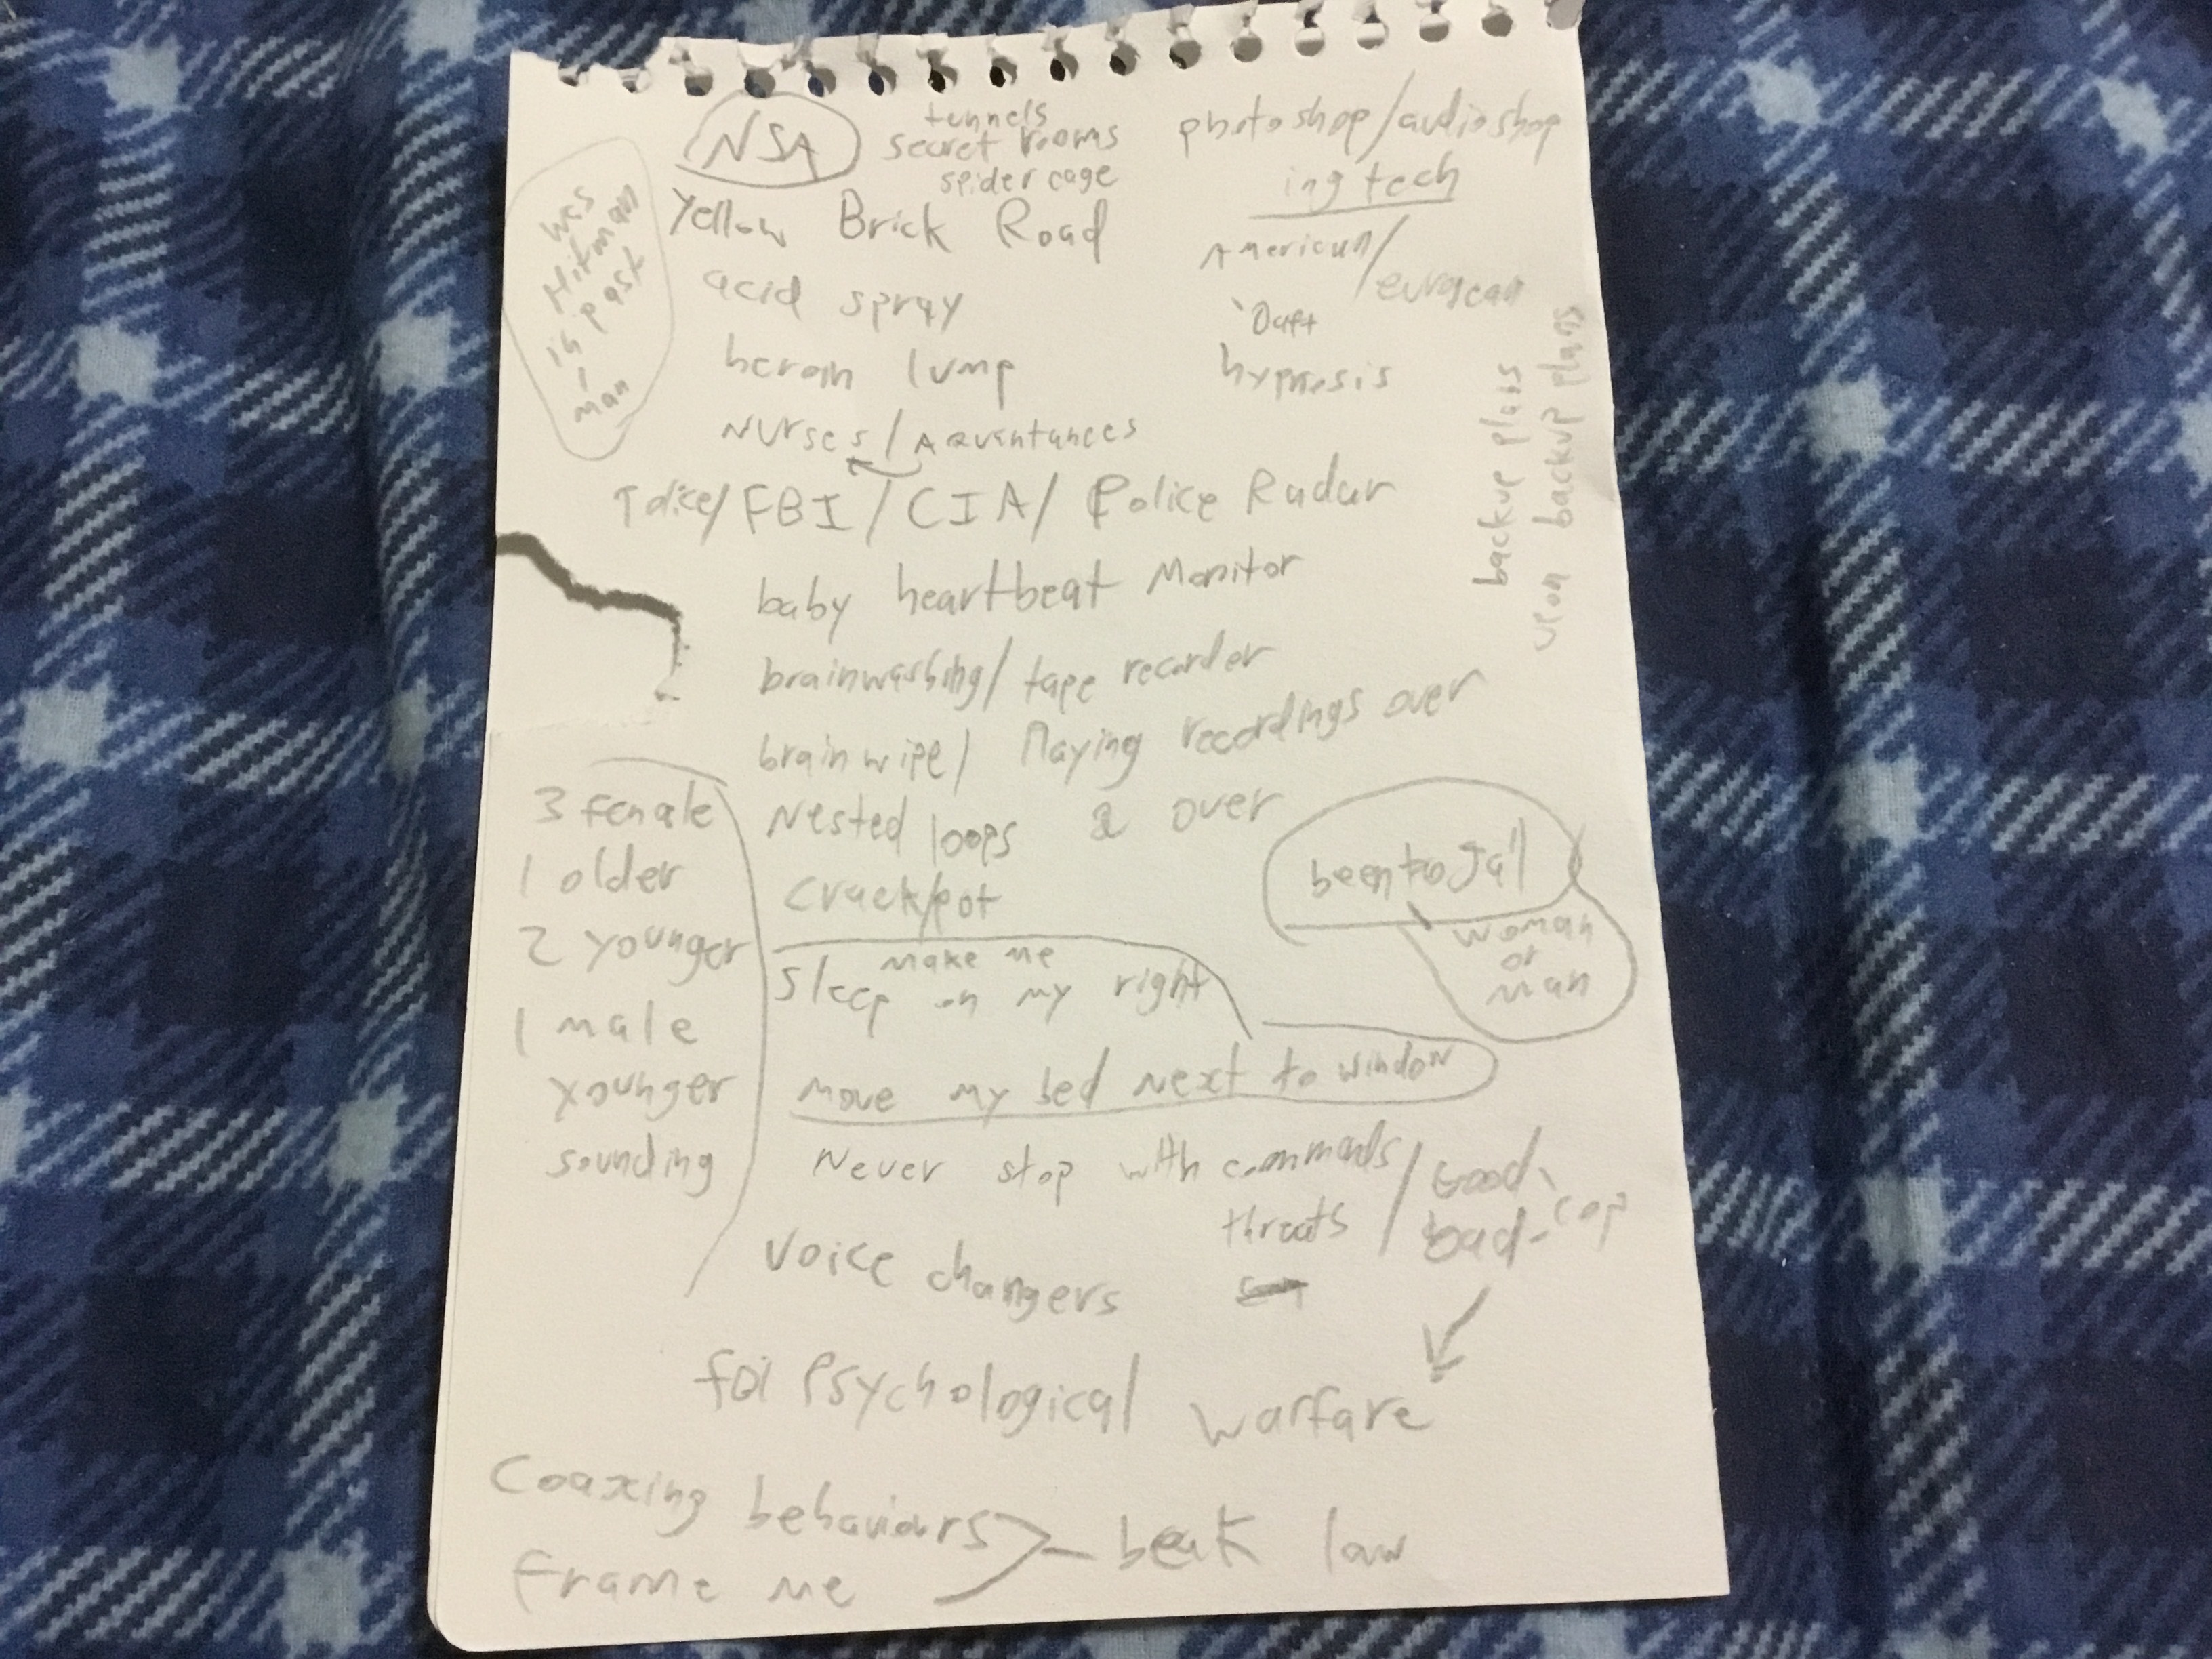 NSA
tunnels
secret rooms
spider cage
photoshop/audioshop
ing tech
was
Hitman
in past
1
man
Yellow Brick Road
American/
european
acid spray
hypnosis
lump
Nurses/Aquentances
backup plans
upon backup plans
FBI/CIA/Police Radar
baby heartbeat Monitor
brainwashing/tape recorder
brain wipe/Playing recordings over
& over
Nested loops
crack/pot
3 female
1 older
2 younger
1 male
younger
sounding
been to Jail
woman
or
man
make me
sleep on my right
move my bed next to window
Never stop with commands
threats
/Good,
bad-cop
voice changers
fbi Psychological warfare
Coaxing behaviours
frame me
beak law